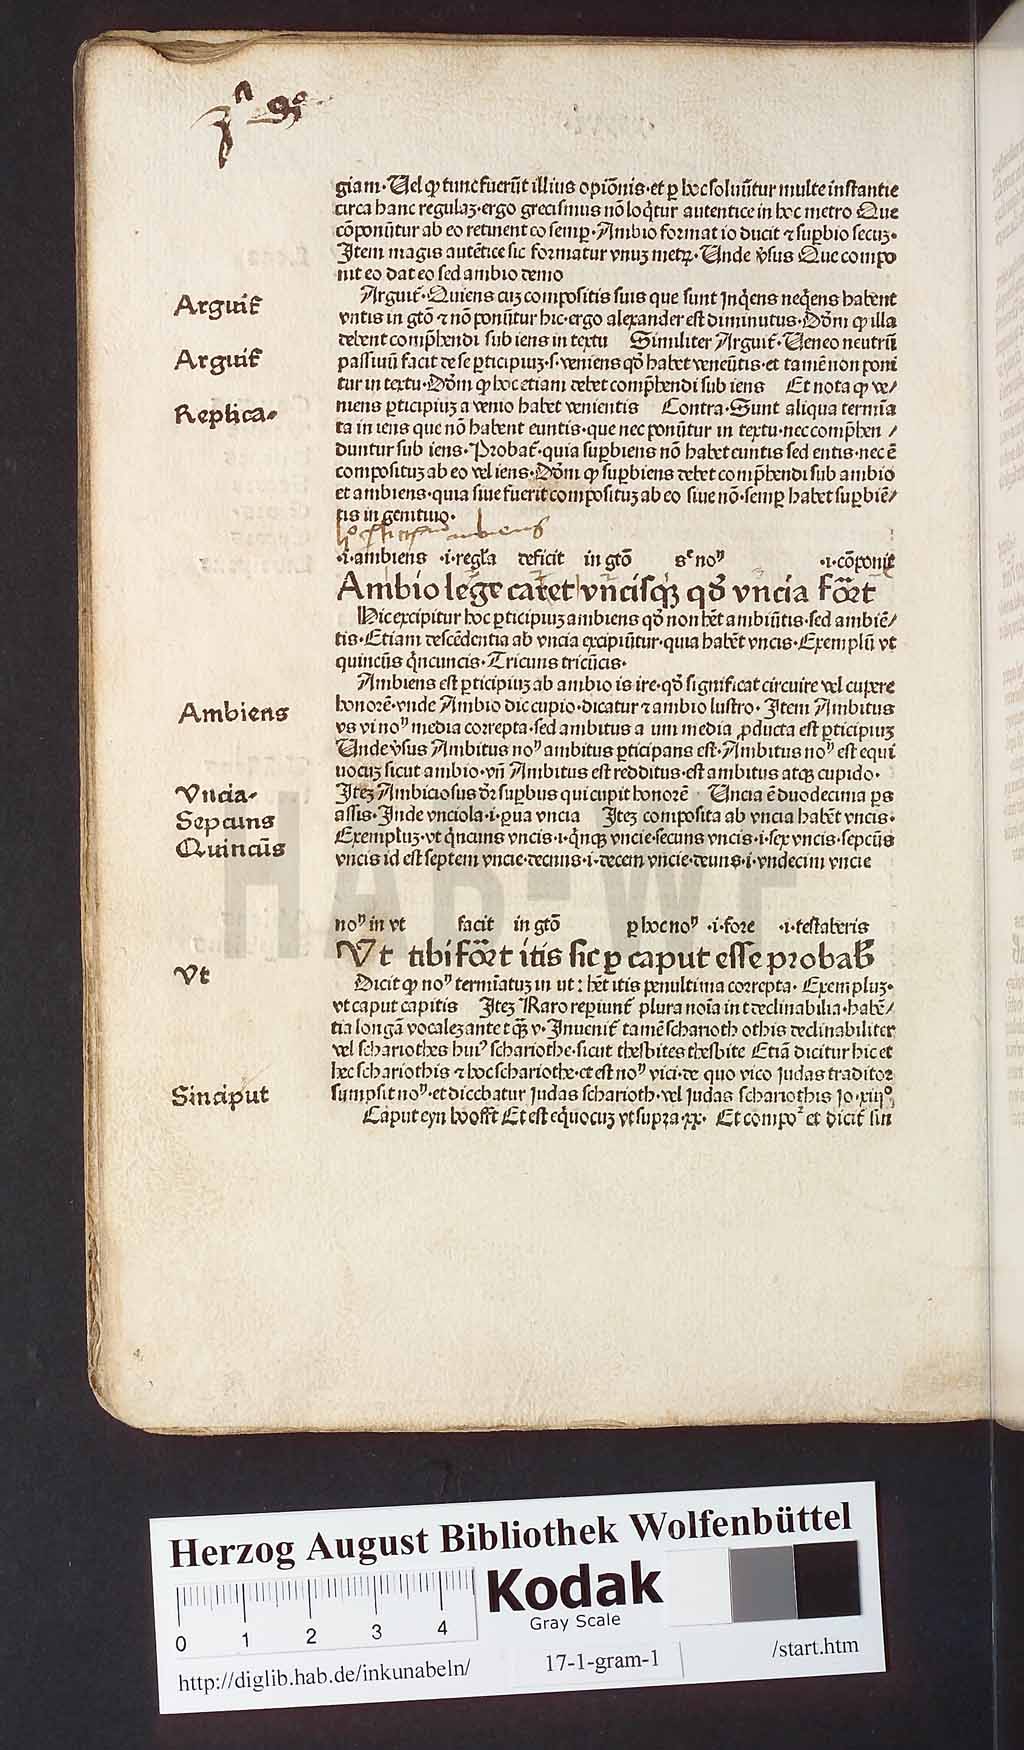 giam·Uel ꝙ tunc fuerūt illius opiōnis·et ꝑ hoc soluūtur multe instantie
circa hanc regulaꝫ·ergo grecismus nō loq̄tur autentice in hoc metro Que
cōponūtur ab eo retinent eo semꝑ·Ambio format io ducit ⁊ suꝑbio secuꝫ·
Item magis autētice sic formatur vnuꝫ metꝝ·Unde v̄sus Que compo
nit eo dat eo sed ambio demo
Arguit̄
Arguit̄·Quiens cuꝫ compositis suis que sunt inq̄ens neq̄ens habent
vntis in gtō ⁊ nō ponūtur hic·ergo alexander est diminutus·Dōm ꝙ illa
debent comp̄hendi sub iens in textu Similiter Arguit̄·Ueneo neutrū
Arguit̄
passiuū facit de se ꝑticipiuꝫ·s·veniens qđ habet veneūtis·et tamē non poni
tur in textu·Dōm ꝙ hoc etiam debet comp̄hendi sub iens Et nota ꝙ ve/
Replica·
niens ꝑticipiuꝫ a venio habet venientis Contra·Sunt aliqua termīa
ta in iens que nō habent euntis·que nec ponūtur in textu·nec comp̄hen /
duntur sub iens·Probat̄·quia suꝑbiens nō habet euntis sed entis·nec ē
composituꝫ ab eo vel iens·Dōm ꝙ suꝑbiens debet comp̄hendi sub ambio
et ambiens·quia siue fuerit composituꝫ ab eo siue nō·semꝑ habet suꝑbiē/
tis in genitiuo·
ambiens
·i·ambiens ·i·regl̄a deficit in gtō sꝫ noⁿ ·i·cōponit̄
Ambio lege caret vncisqꝫ qđ vncia for̄t
Hic excipitur hoc ꝑticipiuꝫ ambiens qđ non hēt ambiūtis·sed ambiē/
tis·Etiam descēdentia ab vncia excipiūtur·quia habēt vncis·Exemplū vt
quincūs q̄ncuncis·Tricuns tricūcis·
Ambiens est ꝑticipiuꝫ ab ambio is ire·qđ significat circuire vel cupere
Ambiens
honorē·vnde Ambio dic cupio·dicatur ⁊ ambio lustro· Item Ambitus
vs vi noⁿ media correpta·sed ambitus a um media ꝓducta est ꝑticipiuꝫ
Unde v̄sus Ambitus noⁿ ambitus ꝑticipans est·Ambitus noⁿ est equi
uocuꝫ sicut ambio·vn̄ Ambitus est redditus·est ambitus atqꝫ cupido·
Vncia·
Iteꝫ Ambiciosus dr̄ suꝑbus qui cupit honorē Uncia ē duodecima ꝑs
Sepcuns
assis·Inde vnciola·i·ꝑua vncia Iteꝫ composita ab vncia habēt vncis·
Quincūs
Exempluꝫ·vt q̄ncuns vncis·i·q̄nqꝫ vncie·secuns vncis·i·sex vncis·sepcūs
vncis id est septem vncie·decuns·i·decem vncie·deuns·i·vndecim vncie
noⁿ in vt facit in gtō ꝑ hoc noⁿ ·i·fore ·i·testaberis
Vt tibi for̄t itis sic ꝑ caput esse probab̄
Vt
Dicit ꝙ noⁿ termīatuꝫ in ut : hēt itis penultima correpta· Exempluꝫ·
vt caput capitis Iteꝫ Raro reꝑiunt̄ plura noīa in t declinabilia·habē/
tia longā vocaleꝫ ante t qꝫ v·Inuenit̄ tamē scharioth othis declinabiliter
vel schariothes huiꝰ schariothe·sicut thesbites thesbite Etiā dicitur hic et
hec schariothis ⁊ hoc schariothe·et est noⁿ vici·de quo vico iudas traditor
Sinciput
sumpsit noⁿ·et dicebatur iudas scharioth·vel iudas schariothis Io·xiijº·
Caput eyn hoofft Et est eq̄uocuꝫ vt supra·xx· Et compoʳ et dicit̄ sin
Herzog August Bibliothek Wolfenbüttel
Kodak
Gray Scale
0 1 2 3 4
http://diglib.hab.de/inkunabeln/ 17-1-gram-1 /start.htm
HAB-WF